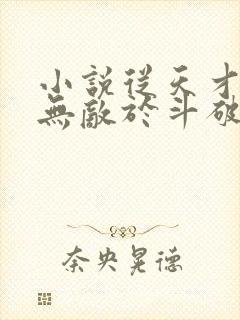 小説從天才
無敵於斗破
奈央晃德